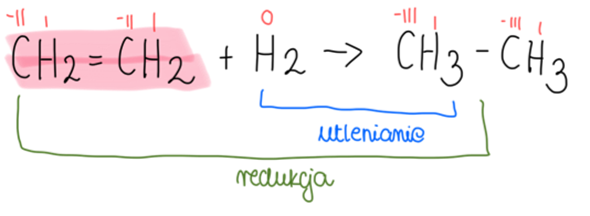 -II I -II I 0 -III I -III I
CH2=CH2 + H2 → CH3-CH3
utlenianie
redukcja